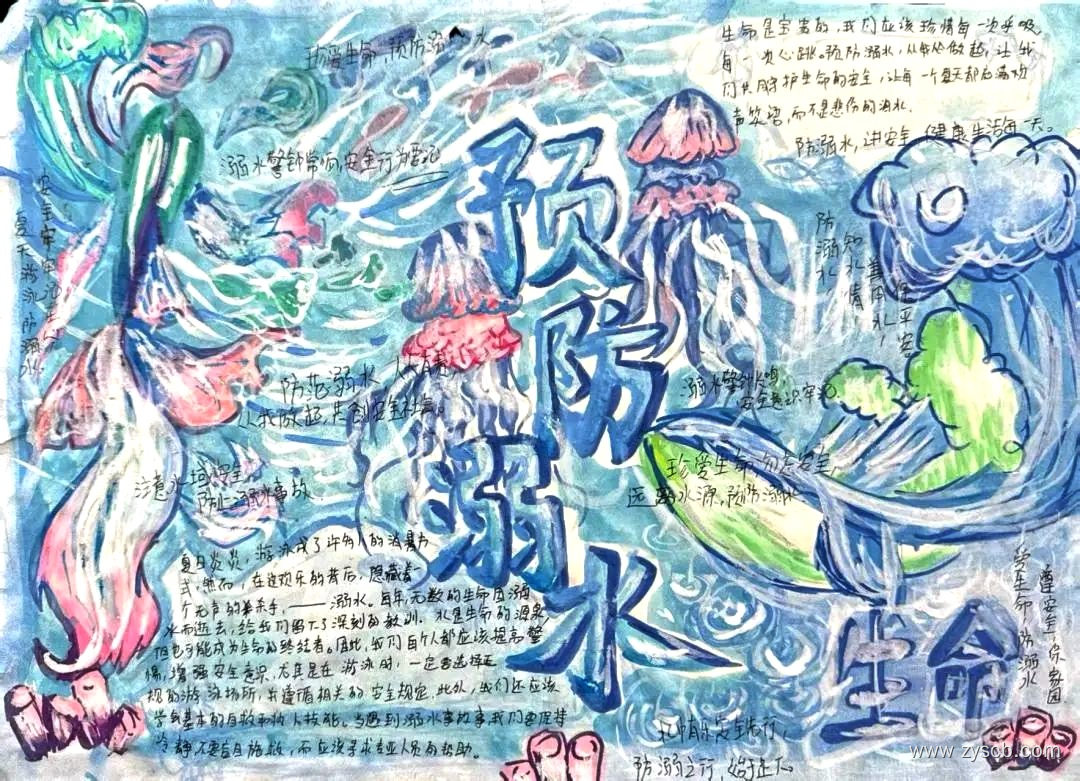 珍爱生命,预防溺水
生命是宝贵的,我们应该珍惜每一次呼吸,
每一次心跳。预防溺水,从我做起,让我
们共同守护生命的安全,让每一个夏天都充满欢
声笑语,而不是悲伤的泪水。
防溺水,讲安全,健康生活每一天。
溺水警钟常响,安全行为要
安全牢牢记
夏天游泳防溺水
预防溺水
防溺水
知水善用水
保平安
防范溺水,人人有责,
从我做起,共创安全社会。
溺水警钟长鸣,
安全意识牢记。
珍爱生命,勿忘安全,
远离水源,预防溺水
注意水域安全,
防止溺水事故
夏日炎炎,游泳成了许多人的消暑方
式,然而,在这欢乐的背后,隐藏着一
个无声的杀手,——溺水。每年,无数的生命因溺
水而逝去,给我们留下了深刻的教训。水是生命的源泉,
但也可能成为生命的终结者。因此,我们每个人都应该提高警
惕,增强安全意识,尤其是在游泳时,一定要选择正
规的游泳场所,并遵循相关的安全规定,此外,我们还应该
学到基本的自救和救人技能。当遇到溺水事故事,我们要保持
冷静不要盲目施救,而应该寻求专业人员的帮助。
生命
爱生命,防溺水
安全行,
防溺之行,始于足下。
www.zyscb.com